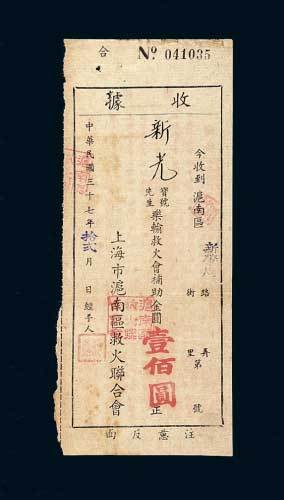 合
No. 041035
收據
今收到滬南區
路
街
弄
里第
號
新光
寶號
先生
樂輸救火會補助金圓壹佰圓正
上海市滬南區救火聯合會
中華民國三十七年拾弍月　日經手人
注意反面